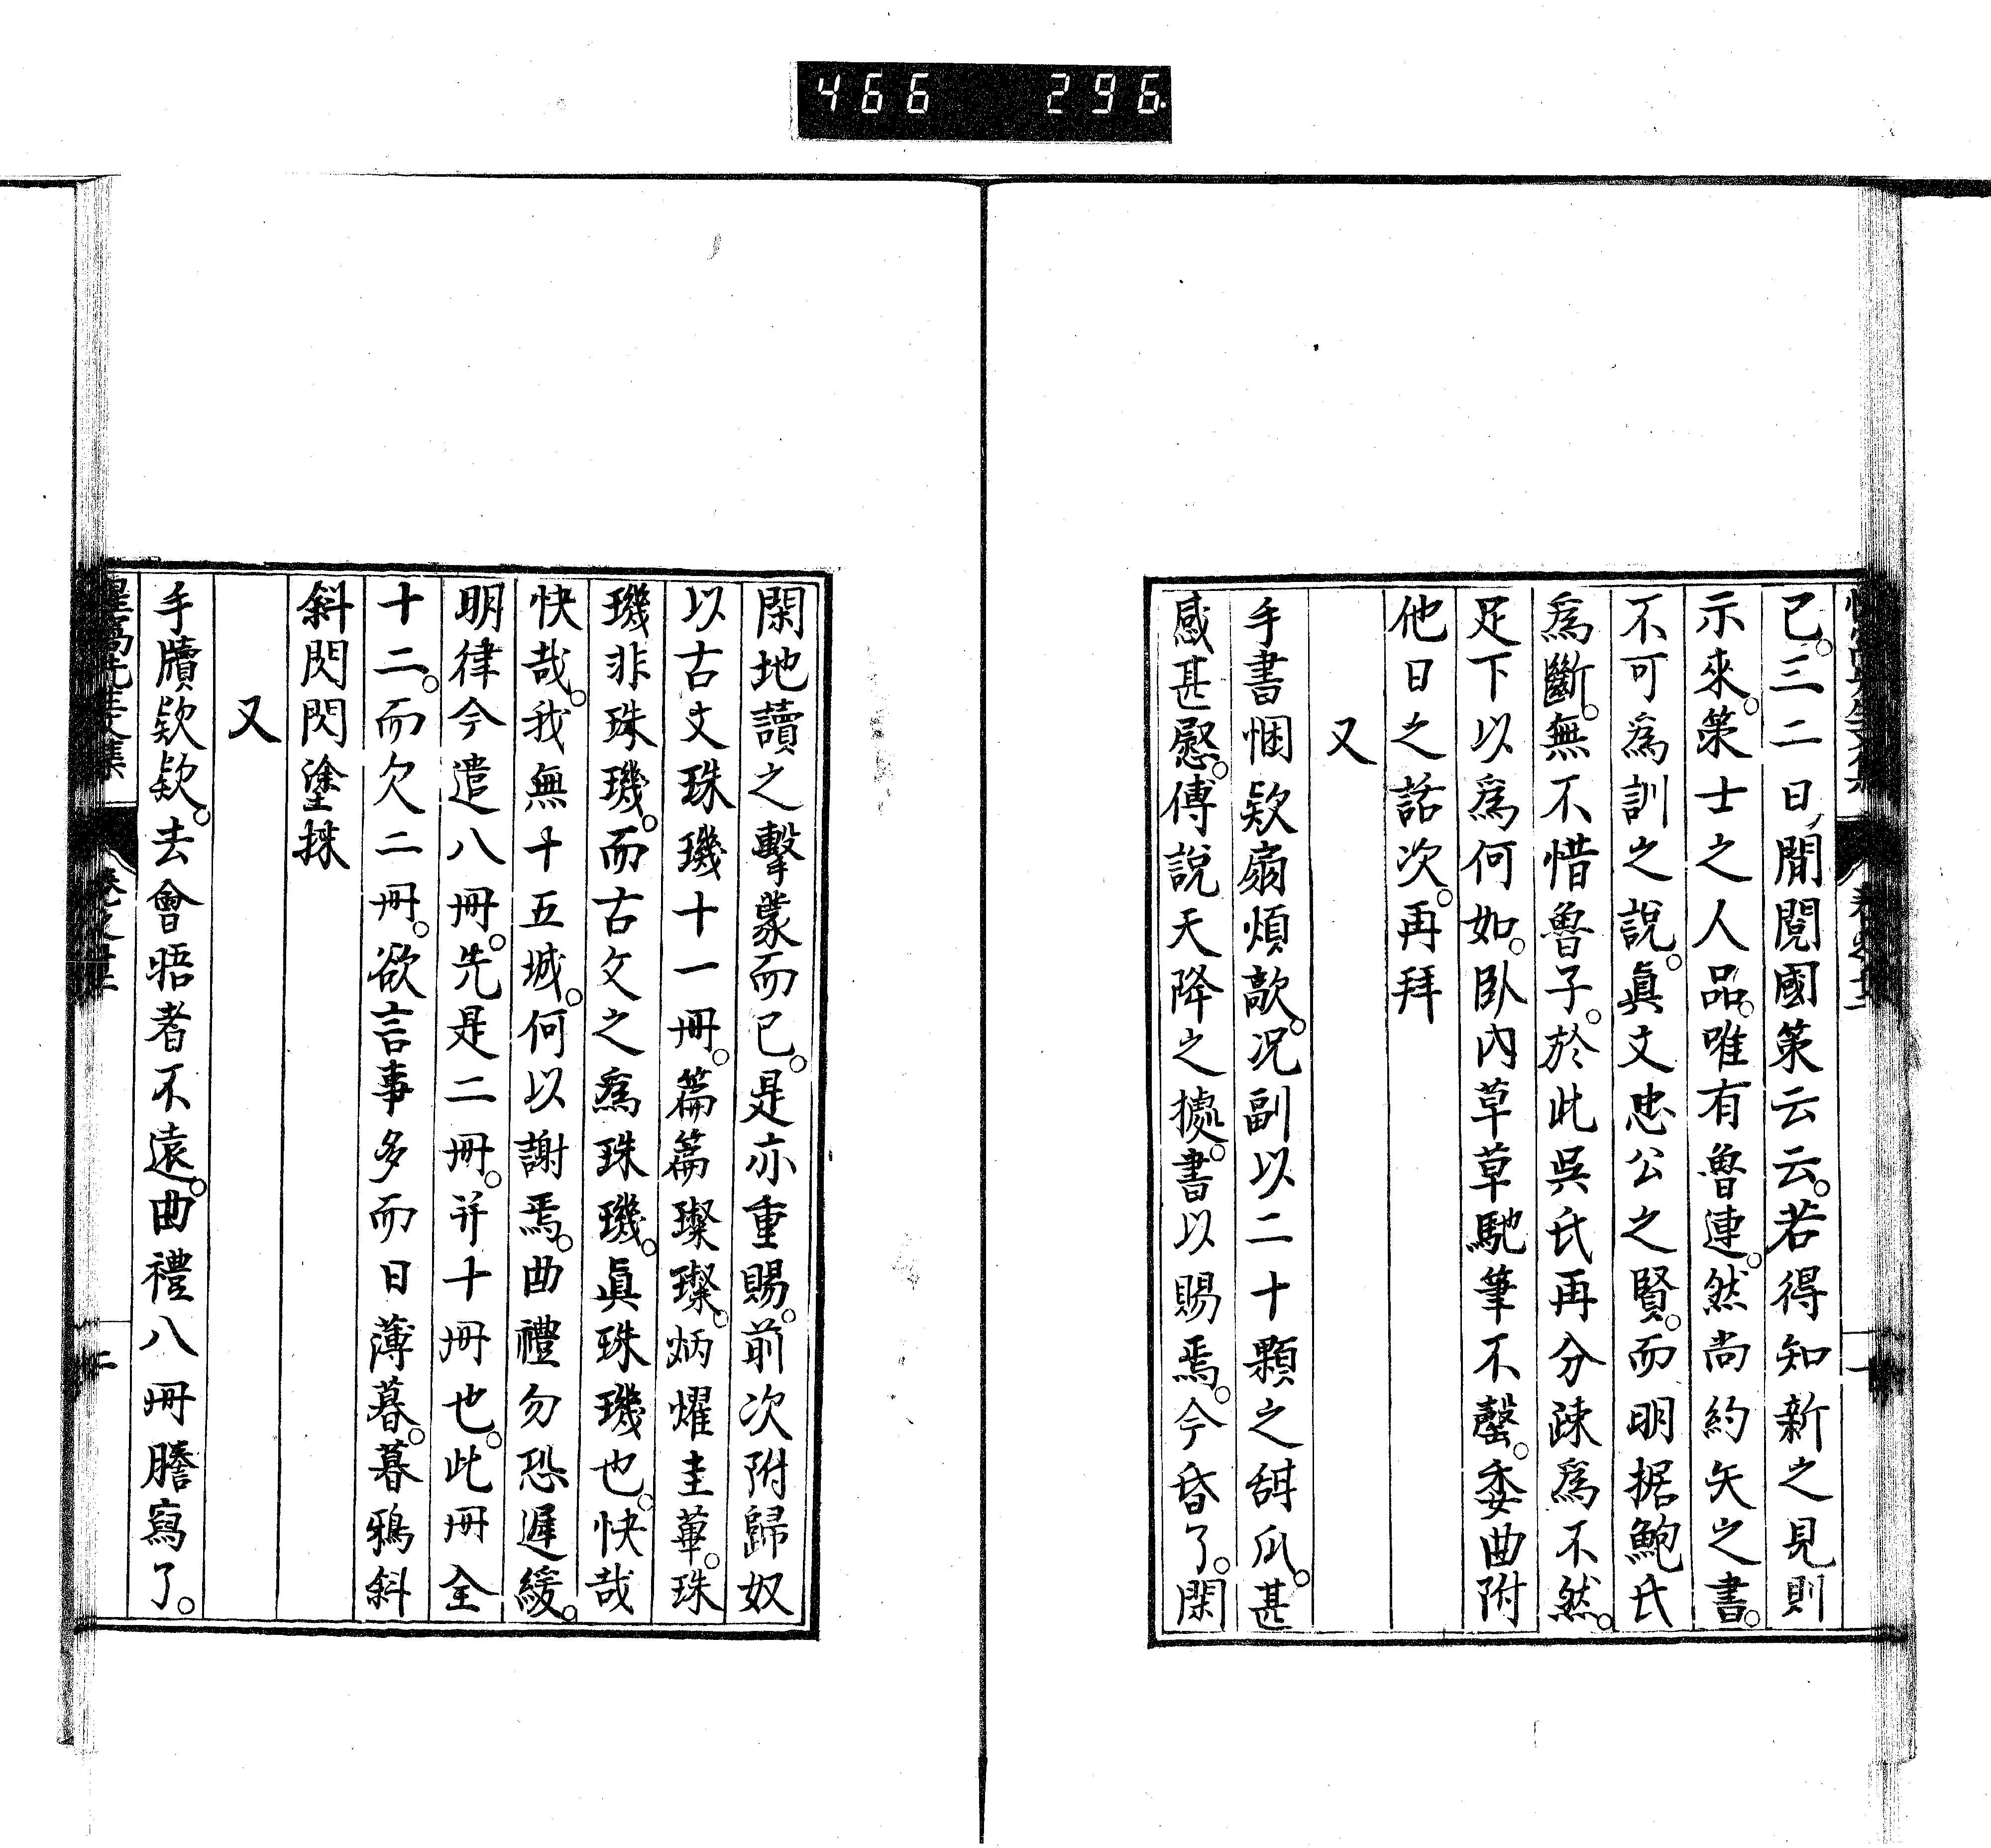 466 296
已。三二日間閱國策云云。若得知新之見則
示來。策士之人品。唯有魯連。然尚約矢之書。
不可爲訓之說。眞文忠公之賢。而明据鮑氏
爲斷。無不惜魯子。於此吳氏再分疎爲不然。
足下以爲何如。臥內草草馳筆不罄。委曲附
他日之話次。再拜
又
手書悃欵扇煩歊。況副以二十顆之甜瓜。甚
感甚慰。傅說天降之據。書以賜焉。今昏了。閑
閑地讀之擊蒙而已。是亦重賜。前次附歸奴
以古文珠璣十一冊。篇篇璨璨。炳燿圭蓽。珠
璣非珠璣。而古文之爲珠璣。眞珠璣也。快哉
快哉。我無十五城。何以謝焉。曲禮勿恐遲緩。
明律今遣八冊。先是二冊。并十冊也。此冊全
十二。而欠二冊。欲言事多而日薄暮。暮鴉斜
斜閃閃塗抹
又
手牘欵欵。去會晤者不遠。曲禮八冊謄寫了。
惺窩先生文集 卷之十二